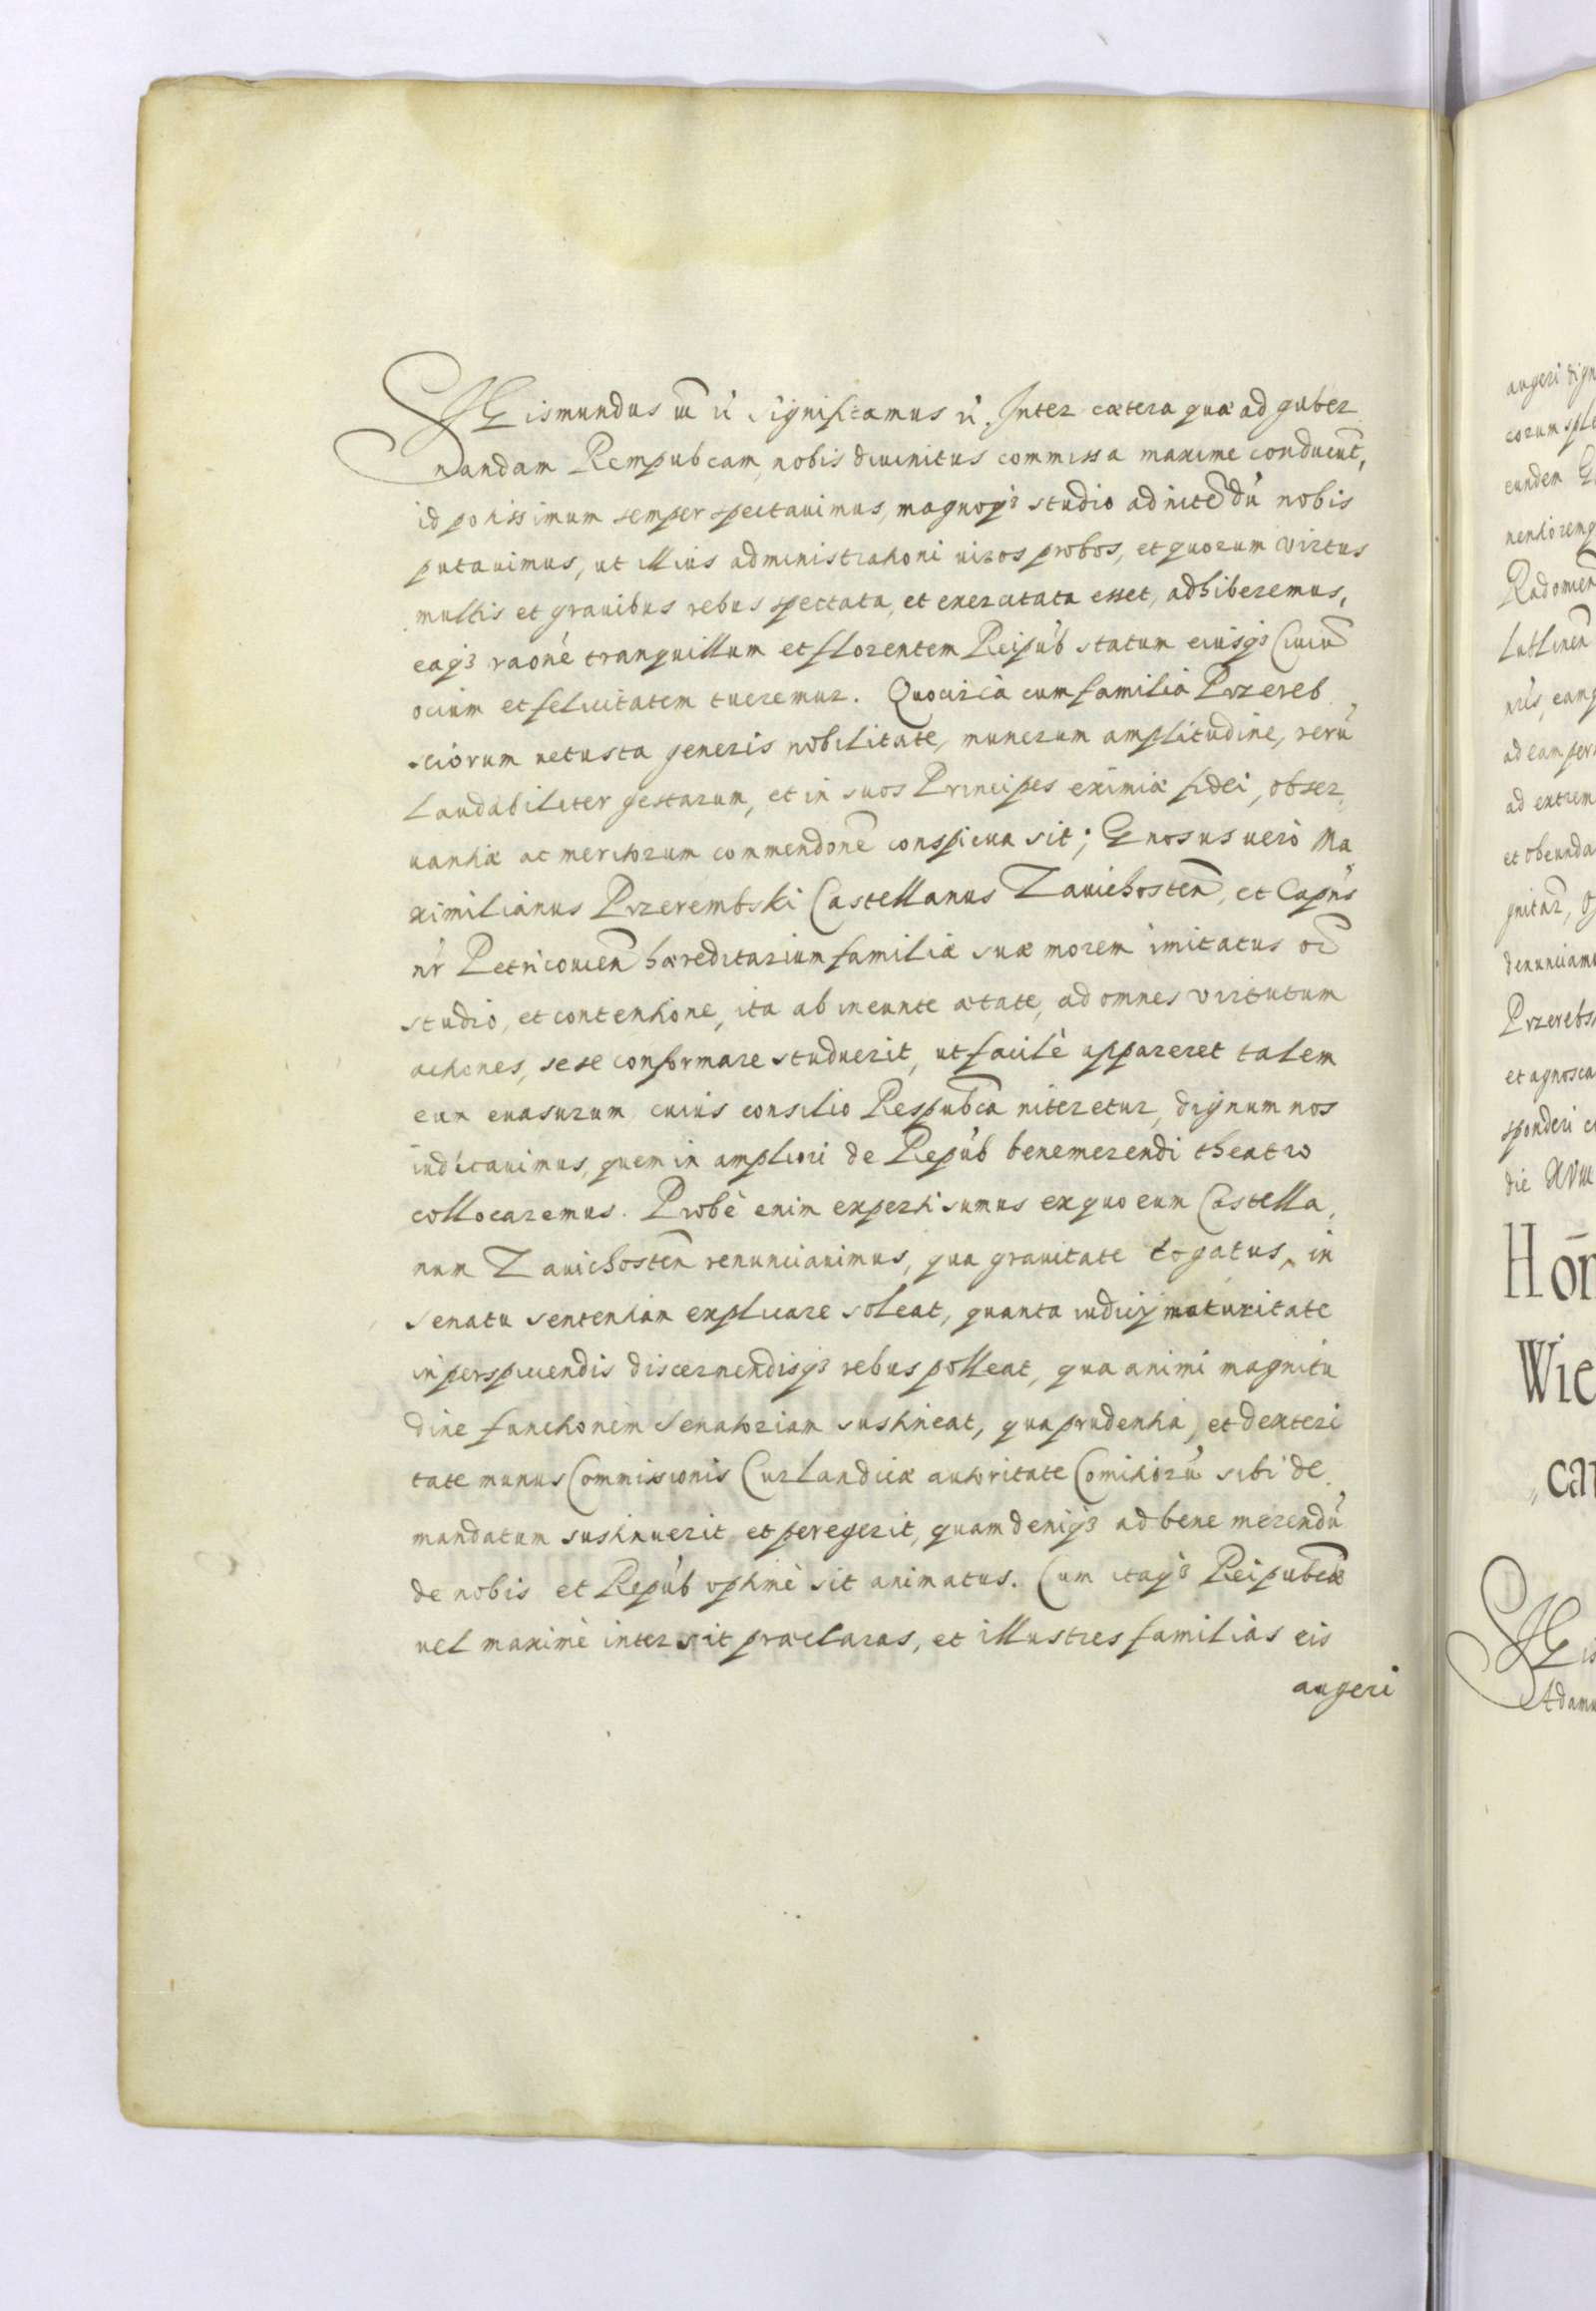 SIGismundus III &c Significamus &c. Inter cætera quæ ad guber
nandam Rempubcam, nobis diuinitus commissa maxime conducũt,
id potissimum semper spectauimus, magnoq₃ studio adnitẽdũ nobis
putauimus, ut illius administrationi uiros probos, et quorum virtus
multis et grauibus rebus spectata, et exercitata esset, adhiberemus,
eaq₃ raõne tranquillum et florentem Reipub statum eiusq₃ Ciuiũ
ocium et felicitatem tueremur. Quocirca cum familia Przereb
sciorum uetusta generis nobilitate, munerum amplitudine, rerũ
laudabiliter gestarum, et in suos Principes eximiæ fidei, obser
uantiæ ac meritorum commendone conspicua sit; Gnosus uerò Ma
ximilianus Przerembski Castellanus Zauichosteñ, et Capñs
nr Petricouieñ hæreditarium familiæ suæ morem imitatus oĩ
studio, et contentione, ita ab ineunte ætate, ad omnes virtutum
actiones, sese conformare studuerit, ut facilè appareret talem
eum euasurum cuius consilio Respubca niteretur, dignum nos
iudicauimus, quem in ampliori de Repub benemerendi theatro
collocaremus. Probè enim experti sumus ex quo eum Castella,
num Zauichosteñ renunciauimus, qua grauitate togatus, in
senatu sententiam explicare soleat, quanta iudicij maturitate
in perspiciendis discernendisq₃ rebus polleat, qua animi magnitu
dine functionem Senatoriam sustineat, qua prudentia, et dexteri
tate munus Commissionis Curlandicæ autoritate Comitiorũ sibi de
mandatum sustinuerit et peregerit, quam deniq₃ ad bene merendũ
de nobis et Repub optimè sit animatus. Cum itaq₃ Reipubcæ
uel maximè intersit præclaras, et illustres familias eis
augeri
augeri dign
eorum sple
eundem G
Radomien
Lublinen
nris, eamq
ad extrem
et obeunda
denunciamu
Przerebs
et agnosca
sponderi c
Hon
Wie
cas
SIGis
Adamu